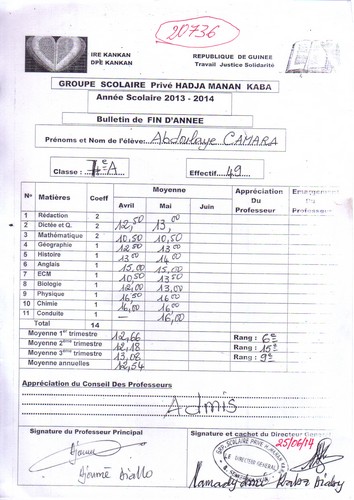 20736
IRE KANKAN
DPE KANKAN
REPUBLIQUE DE GUINEE
Travail Justice Solidarité
GROUPE SCOLAIRE Privé HADJA MANAN KABA
Année Scolaire 2013 - 2014
Bulletin de FIN D'ANNEE
Prénoms et Nom de l'élève: Abdoulaye CAMARA
Classe : 7e A Effectif 49
N° Matières Coeff Moyenne Appréciation Du Professeur
Avril Mai Juin
1 Rédaction 2
2 Dictée et Q. 2 12,50 13,00
3 Mathématique 2 10,50 10,50
4 Géographie 1 12,50 13,00
5 Histoire 1 13,00 14,00
6 Anglais 1 15,00 15,00
7 ECM 1 10,50 13,50
8 Biologie 1 12,00 13,00
9 Physique 1 16,50 16,00
10 Chimie 1 16,00 16,00
11 Conduite 1 — 16,00
Total 14
Moyenne 1er trimestre 12,66 Rang : 6e
Moyenne 2ème trimestre 12,18 Rang : 15e
Moyenne 3ème trimestre 13,08 Rang : 9e
Moyenne annuelles 12,54
Appréciation du Conseil Des Professeurs
Admis
Signature du Professeur Principal
Signature et cachet du Directeur
25/06/14
LE DIRECTEUR GENERAL
Diallo
Mamady
Kaba